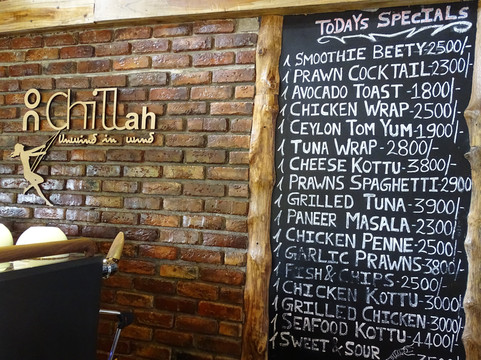 On Chillah
Unwind in wind
TODAYS SPECIALS
1 SMOOTHIE BEETY-2500/-
1 PRAWN COCKTAIL-2300/-
1 AVOCADO TOAST -1800/-
1 CHICKEN WRAP-2500/-
1 CEYLON TOM YUM-1900/-
1 TUNA WRAP -2800/-
1 CHEESE KOTTU-3800/-
1 PRAWNS SPAGHETTI-2900
1 GRILLED TUNA-3900/-
1 PANEER MASALA-2300/-
1 CHICKEN PENNE-2500/-
1 GARLIC PRAWNS-3800/-
1 FISH & CHIPS -2500/-
1 CHICKEN KOTTU-3000/-
1 GRILLED CHICKEN-3000/-
1 SEAFOOD KOTTU-4400/-
1 SWEET & SOUR